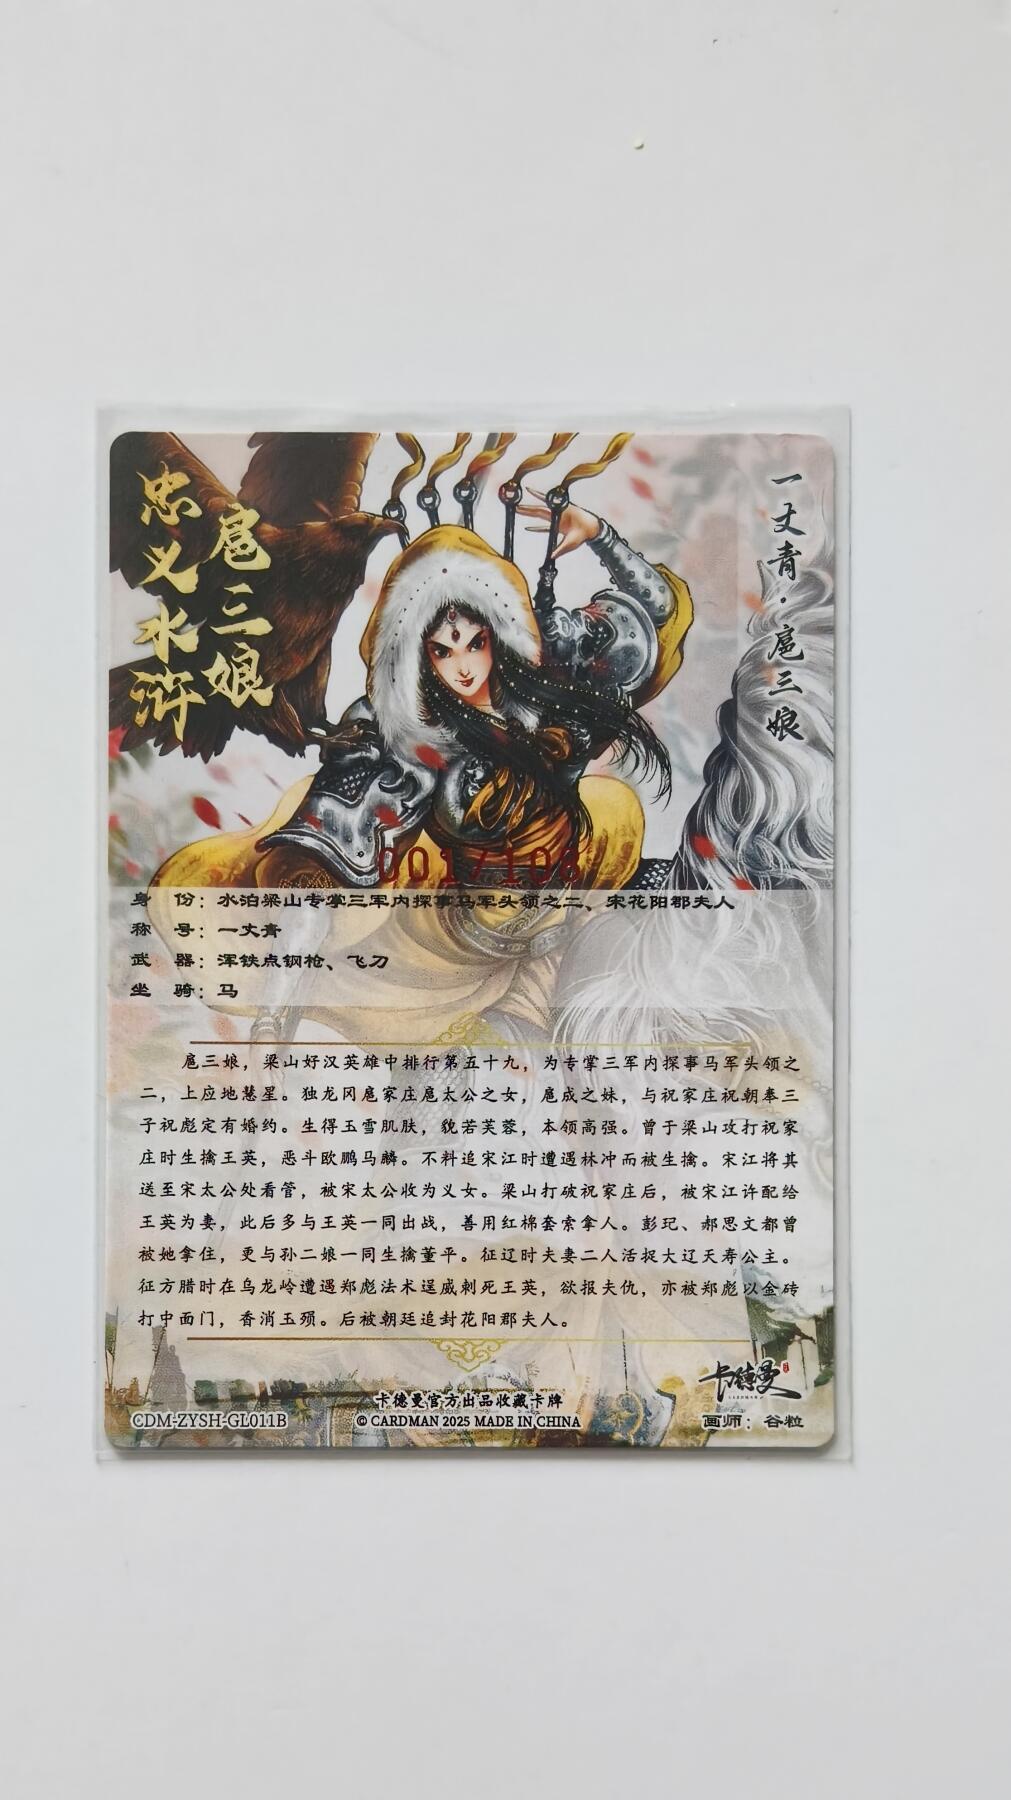 忠义水浒
扈三娘
一丈青·扈三娘
001/108
身 份：水泊梁山专掌三军内探事马军头领之二、宋花阳郡夫人
称 号：一丈青
武 器：浑铁点钢枪、飞刀
坐 骑：马
扈三娘，梁山好汉英雄中排行第五十九，为专掌三军内探事马军头领之
二，上应地慧星。独龙冈扈家庄扈太公之女，扈成之妹，与祝家庄祝朝奉三
子祝彪定有婚约。生得玉雪肌肤，貌若芙蓉，本领高强。曾于梁山攻打祝家
庄时生擒王英，恶斗欧鹏马麟。不料追宋江时遭遇林冲而被生擒。宋江将其
送至宋太公处看管，被宋太公收为义女。梁山打破祝家庄后，被宋江许配给
王英为妻，此后多与王英一同出战，善用红棉套索拿人。彭玘、郝思文都曾
被她拿住，更与孙二娘一同生擒董平。征辽时夫妻二人活捉大辽天寿公主。
征方腊时在乌龙岭遭遇郑彪法术逞威刺死王英，欲报夫仇，亦被郑彪以金砖
打中面门，香消玉殒。后被朝廷追封花阳郡夫人。
卡德曼
卡德曼官方出品收藏卡牌
CDM-ZYSH-GL011B
© CARDMAN 2025 MADE IN CHINA
画师：谷粒